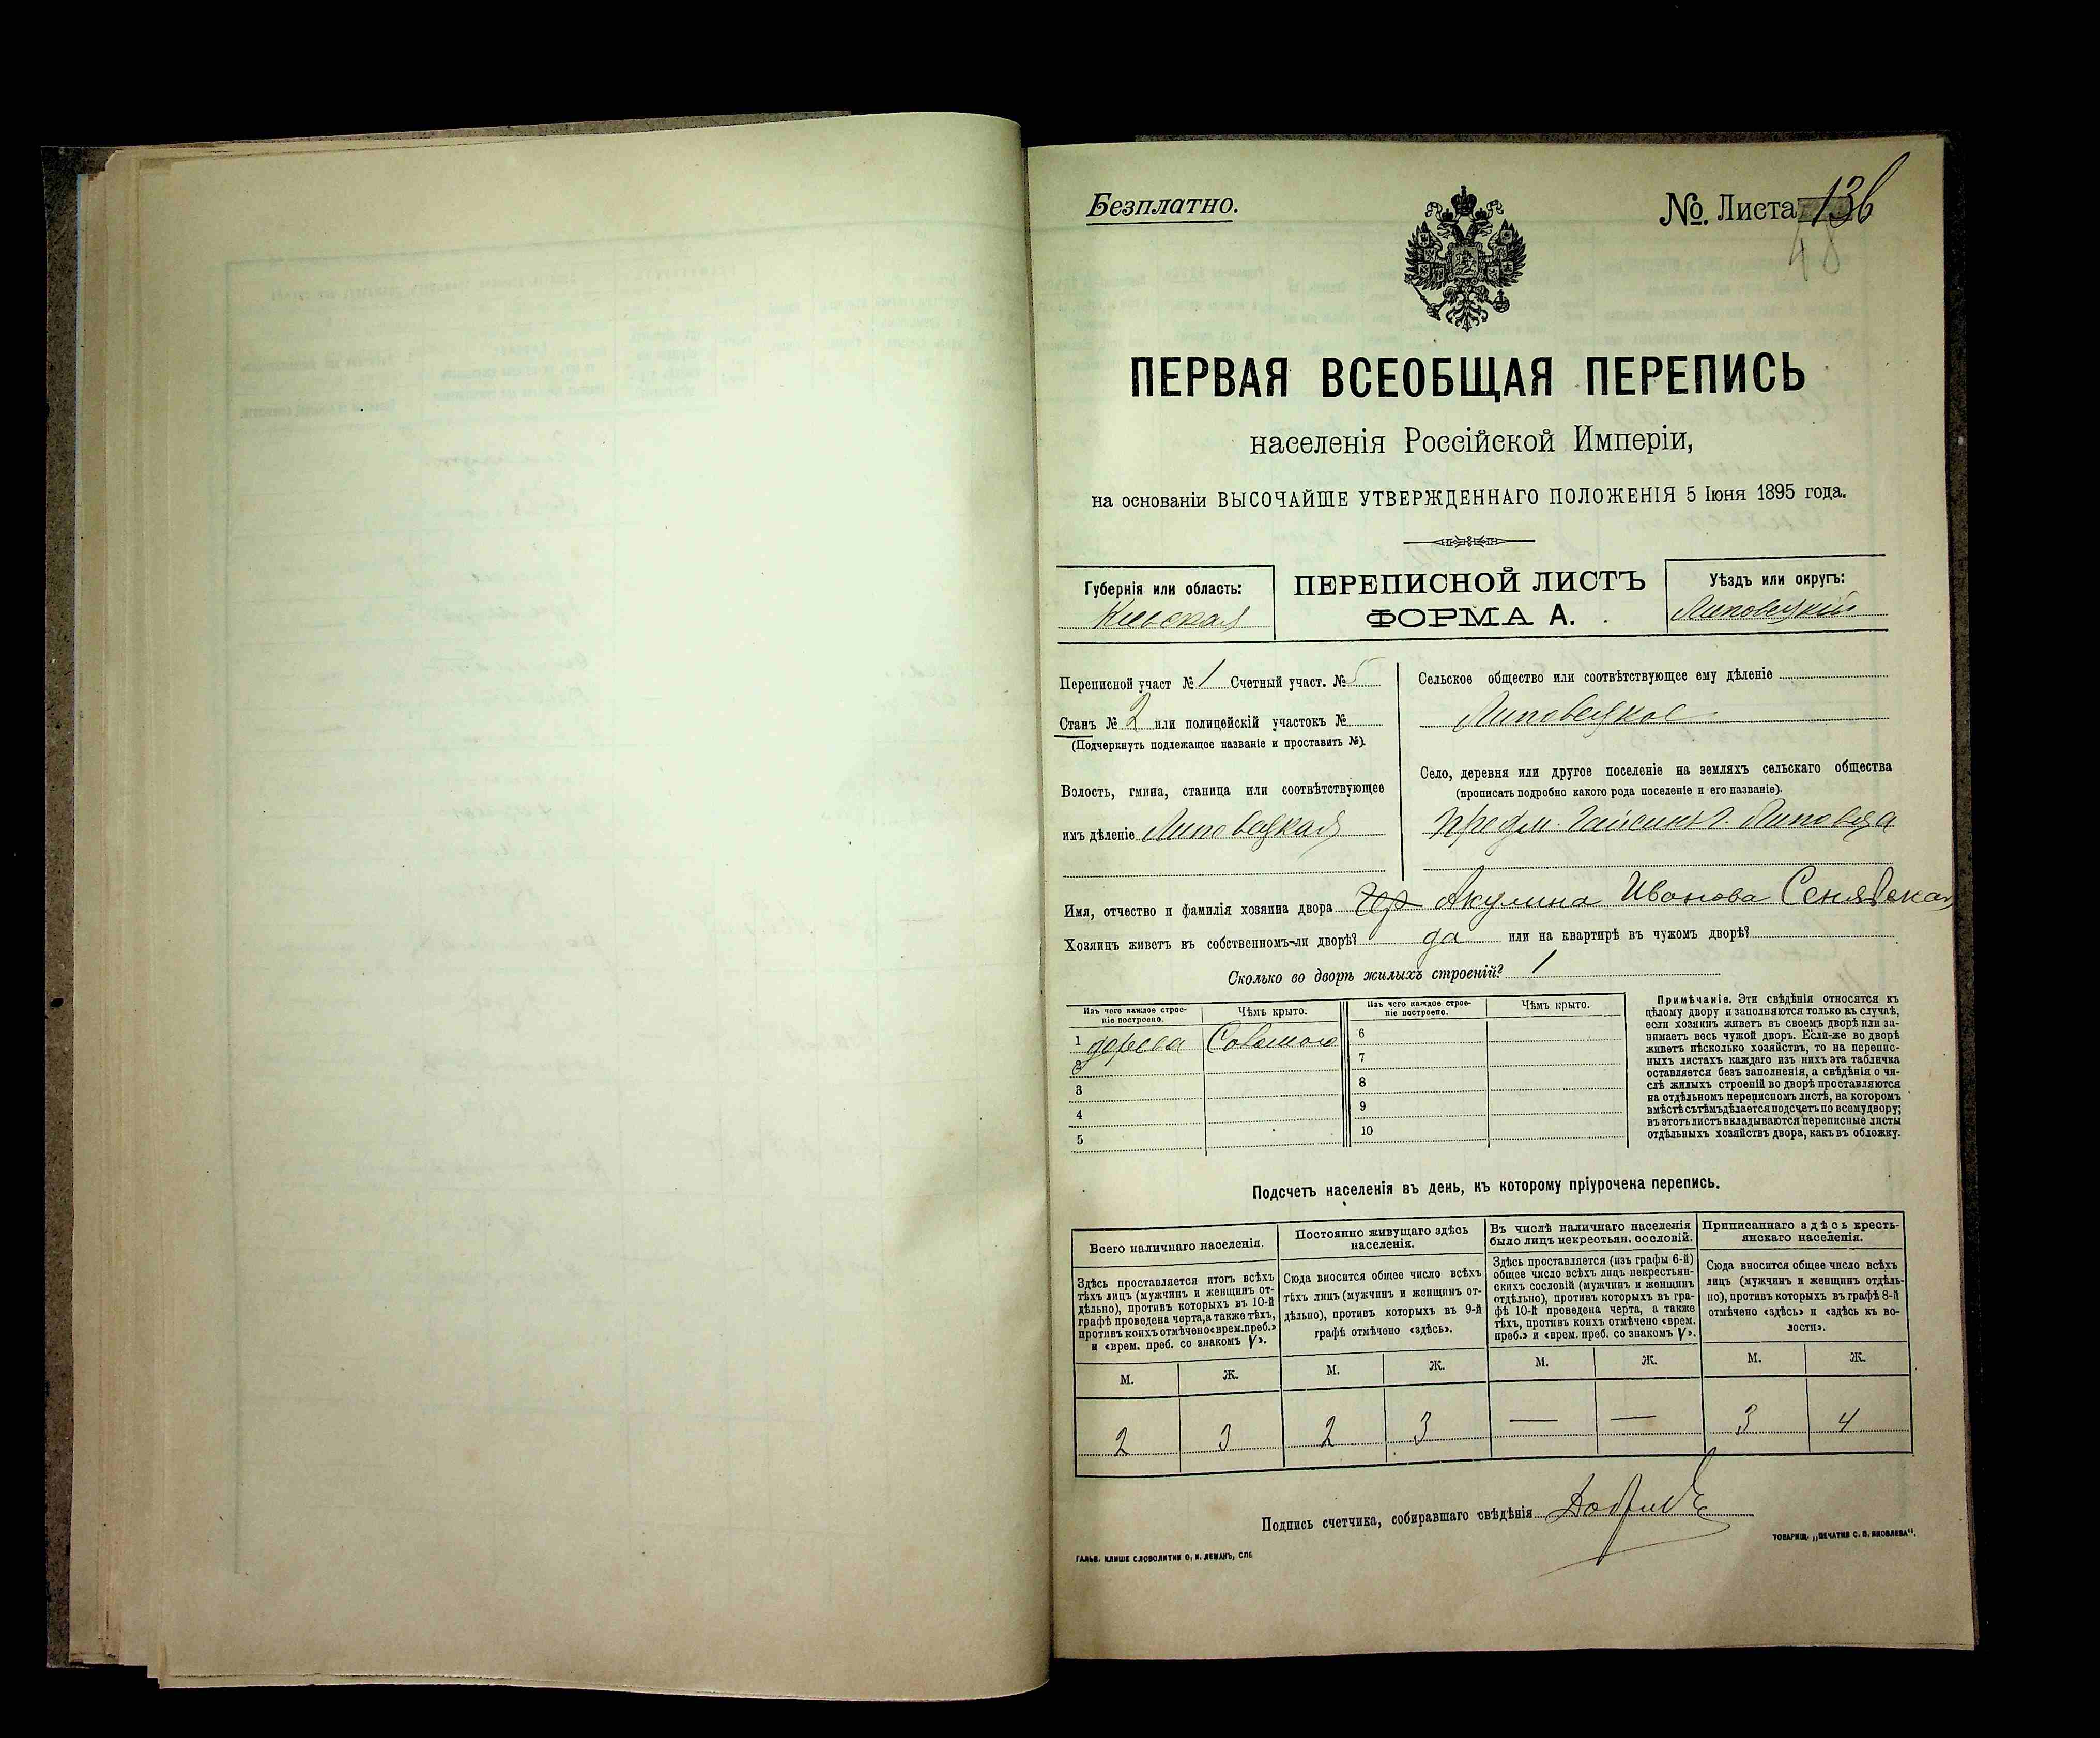 Безплатно.
№ Листа 136
48
ПЕРВАЯ ВСЕОБЩАЯ ПЕРЕПИСЬ
населенія Россійской Имперіи,
на основаніи ВЫСОЧАЙШЕ УТВЕРЖДЕННАГО ПОЛОЖЕНІЯ 5 Іюня 1895 года.
Губернія или область:
Кіевская
ПЕРЕПИСНОЙ ЛИСТЪ
ФОРМА А.
Уѣздъ или округъ:
Липовецкій
Переписной участ № 1 Счетный участ. № 5
Станъ № 2 или полицейскій участокъ №
(Подчеркнуть подлежащее названіе и проставить №).
Волость, гмина, станица или соотвѣтствующее
имъ дѣленіе Липовецкая
Сельское общество или соотвѣтствующее ему дѣленіе
Липовецкое
Село, деревня или другое поселеніе на земляхъ сельскаго общества
(прописать подробно какого рода поселеніе и его названіе).
Предм. г. Липовца
Имя, отчество и фамилія хозяина двора Акулина Иванова Сенявская
Хозяинъ живетъ въ собственномъ-ли дворѣ? да или на квартирѣ въ чужомъ дворѣ?
Сколько во дворѣ жилыхъ строеній? 1
Изъ чего каждое строе-
ніе построено.
Чѣмъ крыто.
Изъ чего каждое строе-
ніе построено.
Чѣмъ крыто.
1 дерева Соломою 6
2 7
3 8
4 9
5 10
Примѣчаніе. Эти свѣдѣнія относятся къ
цѣлому двору и заполняются только въ случаѣ,
если хозяинъ живетъ въ своемъ дворѣ или за-
нимаетъ весь чужой дворъ. Если-же во дворѣ
живетъ нѣсколько хозяйствъ, то на перепис-
ныхъ листахъ каждаго изъ нихъ эта табличка
оставляется безъ заполненія, а свѣдѣнія о чи-
слѣ жилыхъ строеній во дворѣ проставляются
на отдѣльномъ переписномъ листѣ, на которомъ
вмѣстѣ съ тѣмъ дѣлается подсчетъ по всему двору;
въ этотъ листъ вкладываются переписные листы
отдѣльныхъ хозяйствъ двора, какъ въ обложку.
Подсчетъ населенія въ день, къ которому пріурочена перепись.
Всего наличнаго населенія.
Здѣсь проставляется итогъ всѣхъ
тѣхъ лицъ (мужчинъ и женщинъ от-
дѣльно), противъ которыхъ въ 10-й
графѣ проведена черта, а также тѣхъ,
противъ коихъ отмѣчено «врем. преб.»
и «врем. преб. со знакомъ V».
Постоянно живущаго здѣсь
населенія.
Сюда вносится общее число всѣхъ
тѣхъ лицъ (мужчинъ и женщинъ от-
дѣльно), противъ которыхъ въ 9-й
графѣ отмѣчено «здѣсь».
Въ числѣ наличнаго населенія
было лицъ некрестьян. сословій.
Здѣсь проставляется (изъ графы 6-й)
общее число всѣхъ лицъ некрестьян-
скихъ сословій (мужчинъ и женщинъ
отдѣльно), противъ которыхъ въ гра-
фѣ 10-й проведена черта, а также
тѣхъ, противъ коихъ отмѣчено «врем.
преб.» и «врем. преб. со знакомъ V».
Приписаннаго здѣсь кресть-
янскаго населенія.
Сюда вносится общее число всѣхъ
лицъ (мужчинъ и женщинъ отдѣль-
но), противъ которыхъ въ графѣ 8-й
отмѣчено «здѣсь» и «здѣсь къ во-
лости».
М. Ж. М. Ж. М. Ж. М. Ж.
2 3 2 3 — — 3 4
Подпись счетчика, собиравшаго свѣдѣнія
ГАЛЬВ. КЛИШЕ СЛОВОЛИТНИ О. И. ЛЕМАНЪ, СПБ.
ТОВАРИЩ. „ПЕЧАТНЯ С. П. ЯКОВЛЕВА".